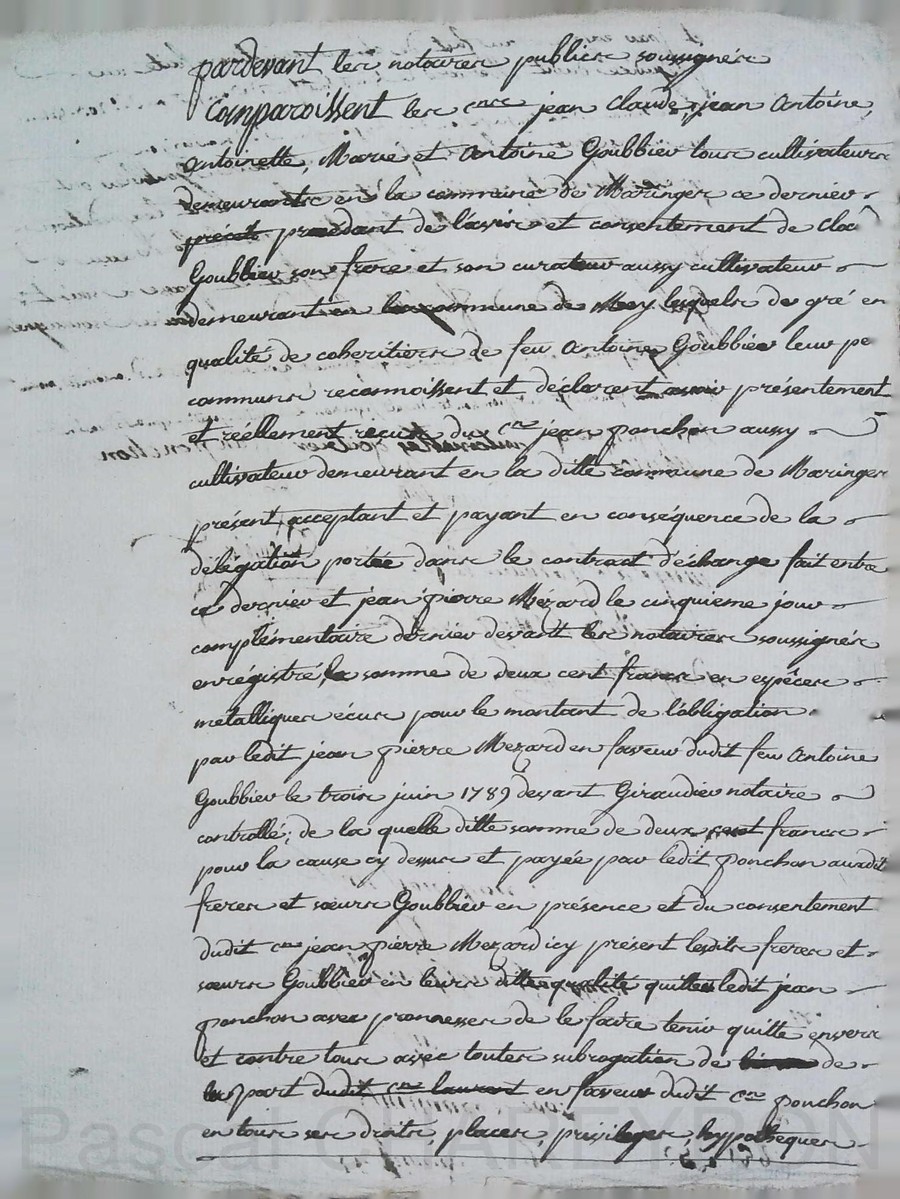 pardevant les notaires publics soussignés
Comparoissent les cnes jean Claude, jean Antoine,
Antoinette, Marie et Antoine Goubbier tous cultivateurs
demeurants en la commune de Maringes ce dernier
procedant de l'avis et consentement de
Goubbier son frere et son curateur aussy cultivateur
demeurant en la commune de Meys lesquels de gré en
qualité de coheritiers de feu Antoine Goubbier leur pe
communs reconnoissent et déclarent avoir présentement
et réellement reçus du cne jean ponchon aussy
cultivateur demeurant en la ditte commune de Maringes
présent, acceptant et payant en conséquence de la
délégation portée dans le contract d'échange fait entre
ce dernier et jean pierre Mézard le cinquieme jour
complémentaire dernier devant les notaires soussignés
enrégistré, la somme de deux cent francs en espêces
métalliques écus pour le montant de l'obligation
par ledit jean pierre Mezard en faveur dudit feu Antoine
Goubbier le trois juin 1789 devant Giraudier notaire
controllé; de la quelle ditte somme de deux cent francs
pour la cause cy dessus et payée par ledit ponchon auxdit
freres et sœurs Goubbier en présence et du consentement
dudit cne jean pierre Mezard icy présent lesdits freres et
sœurs Goubbier en leurs dittes qualité quittes ledit jean
ponchon avec promesses de le faire tenir quitte envers
et contre tous avec toutes subrogation de de
la part dudit cne laurent en faveur dudit cne ponchon
en tous ses droits, places, privileges, hypothéques
Pascal CHAREYRON